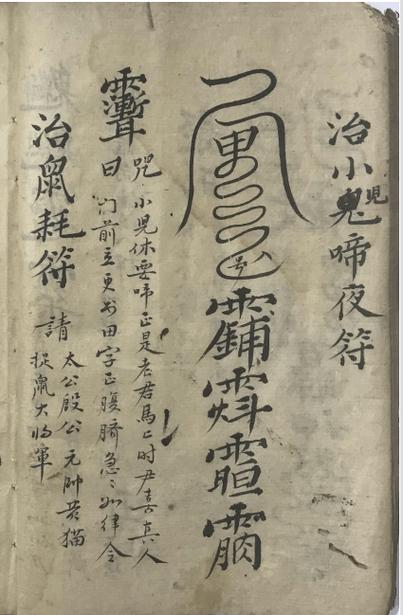 治小鬼兒啼夜符
更
咒 小児休要啼正是老君馬上时尹喜真人
曰 门前立更书田字正腹臍急〻如律令
治鼠耗符
請 太公殷公元帅黃猫
捉鼠大将軍